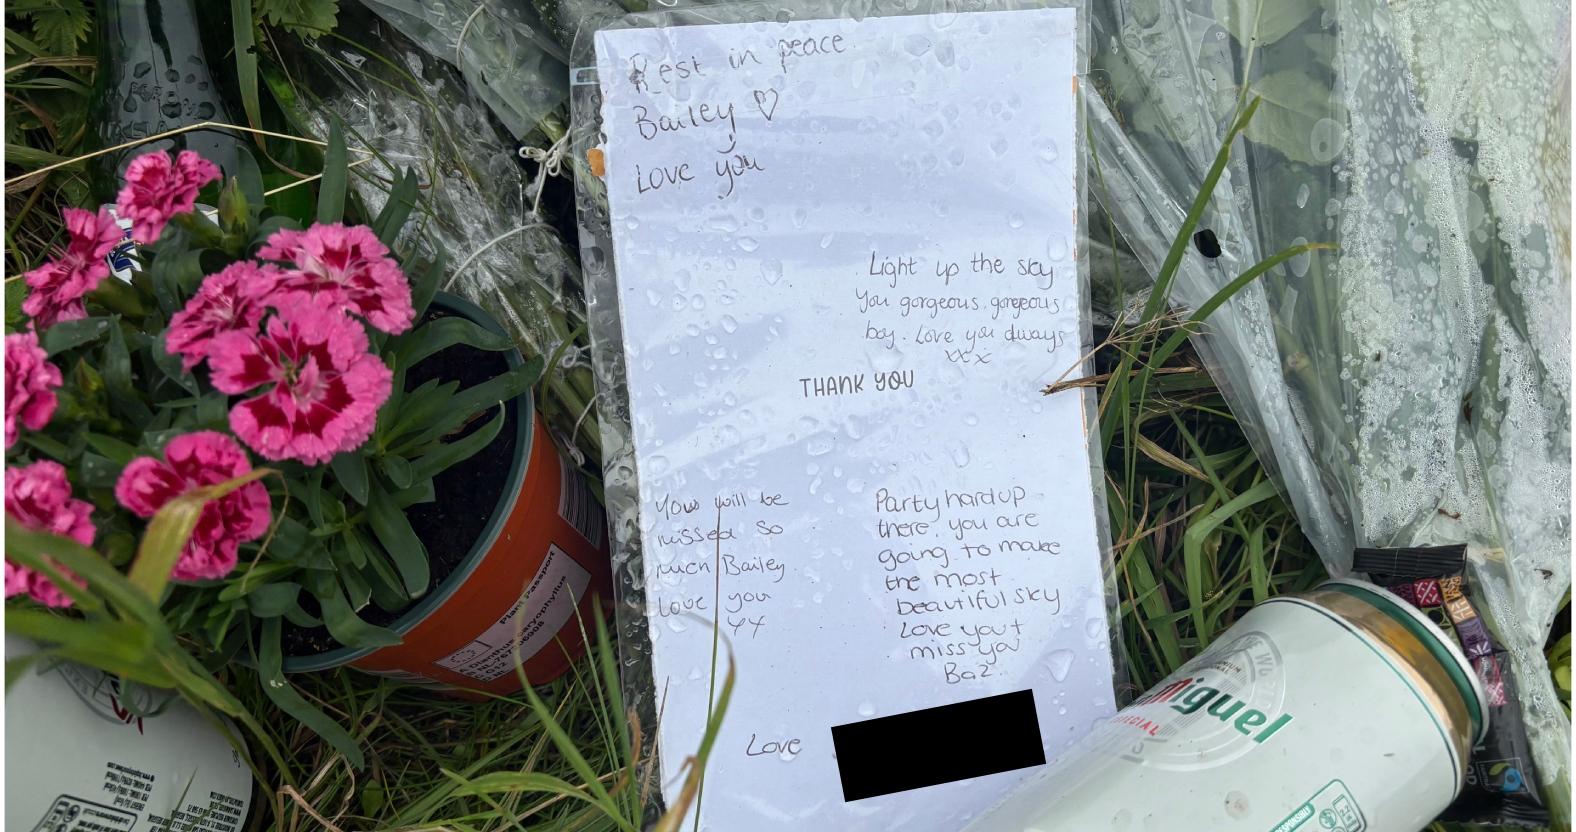 Rest in peace
Bailey ♡
Love you
Light up the sky
You gorgeous, gorgeous
boy. Love you always
xx x
THANK YOU
You will be
missed so
much Bailey
Love you
xx
Party hard up
there, you are
going to make
the most
beautiful sky
Love you +
miss ya
Baz
Love
Plant Passport
A Dianthus caryophyllus
Miguel
ESPECIAL